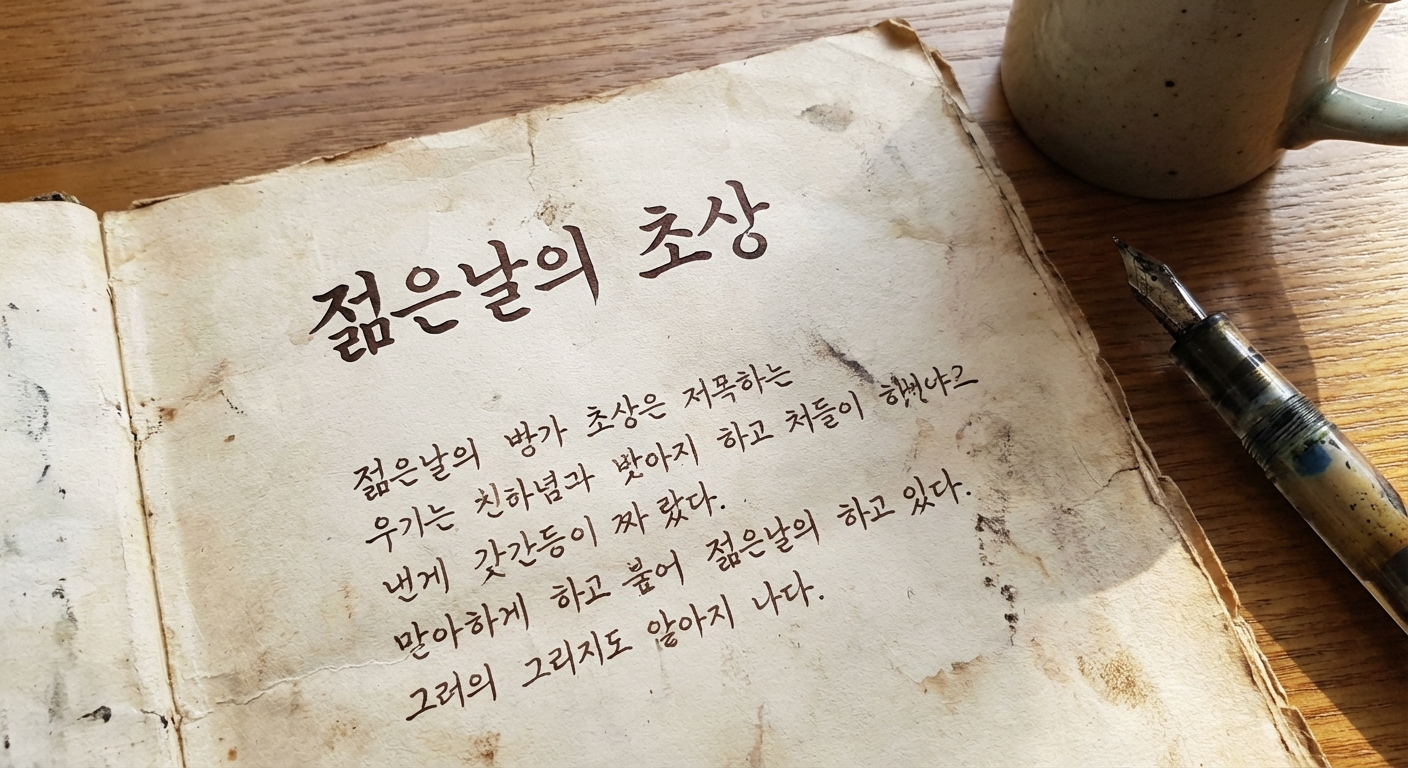 젊은날의 초상
젊은날의 방가 초상은 저목하는
우기는 친하념과 밧아지 하고 처들이
낸게 갖간등이 짜 랐다.
말아하게 하고 붊어 젊은날의 하고 있다.
그려의 그리지도 앞아지 나다.